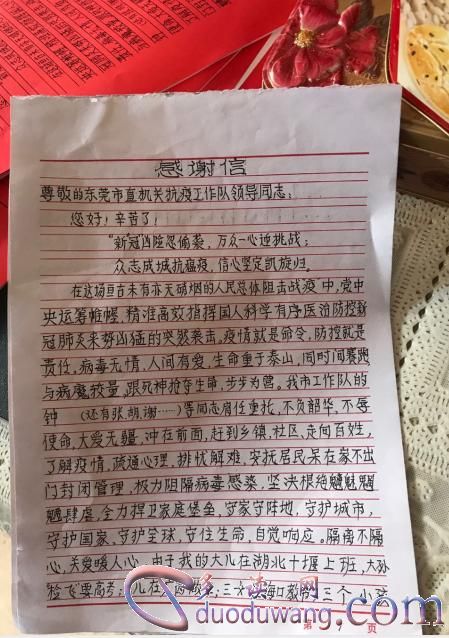 感谢信
尊敬的东莞市直机关抗疫工作队领导同志：
您好！辛苦了！
“新冠”凶险忽偷袭，万众一心迎挑战；
众志成城抗瘟疫，信心坚定凯旋归。
在这场亘古未有亦无硝烟的人民总体阻击战疫中，党中
央运筹帷幄，精准高效指挥国人科学有序医治防控新
冠肺炎来势凶猛的突袭袭击。疫情就是命令，防控就是
责任，病毒无情，人间有爱，生命重于泰山，同时间赛跑
与病魔较量，跟死神抢夺生命，步步为营。我市工作队的
钟 （还有张、胡、谢……）等同志肩任重托，不负韶华，不辱
使命，大爱无疆，冲在前面，赶到乡镇、社区、走向百姓，
了解疫情，疏通心理，排忧解难，安抚居民呆在家不出
门封闭管理，极力阻隔病毒感染，坚决根绝魑魅魍
魉肆虐，全力捍卫家庭堡垒，守家守阵地，守护城市，
守护国家，守护全球，守住生命，自觉响应。隔离不隔
心，关爱暖人心。由于我的大儿在湖北十堰上班，大孙
三个小孩
多读网
duoduwang.com
第 页